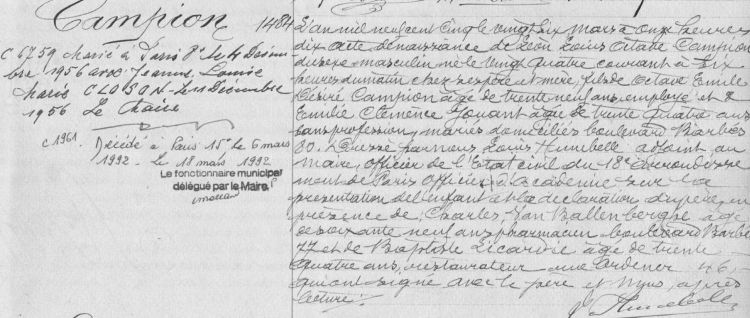 Campion
1484
C 6759 Marié à Paris 8e le 4 Décem
bre 1956 avec Jeanne Louise
Marie CLOSON. Le 11 Décembre
1956 Le Maire
C 1961. Décédé à Paris 15e le 6 mars
1992. Le 18 mars 1992
Le fonctionnaire municipal
délégué par le Maire.
L'an mil neuf cent cinq le vingt six mars à onze heures
dix acte de naissance de Léon Louis Octave Campion
du sexe masculin né le vingt quatre courant à six
heures du matin chez ses père et mère, fils de Octave Emile
Désiré Campion âgé de trente neuf ans, employé et de
Emilie Clémence âgée de trente quatre ans
sans profession, mariés domiciliés boulevard Barbès
80. Dressé par nous Louis Humbelle adjoint au
Maire, officier de l'Etat civil du 18e arrondisse
ment de Paris Officier d'Académie sur la
présentation de l'enfant et la déclaration du père, en
présence de Charles Van Ballenberghe âgé
de soixante neuf ans pharmacien boulevard Barbès
77 et de Baptiste âgé de trente
quatre ans, restaurateur rue Ordener 46,
qui ont signé avec le père et nous, après
lecture.